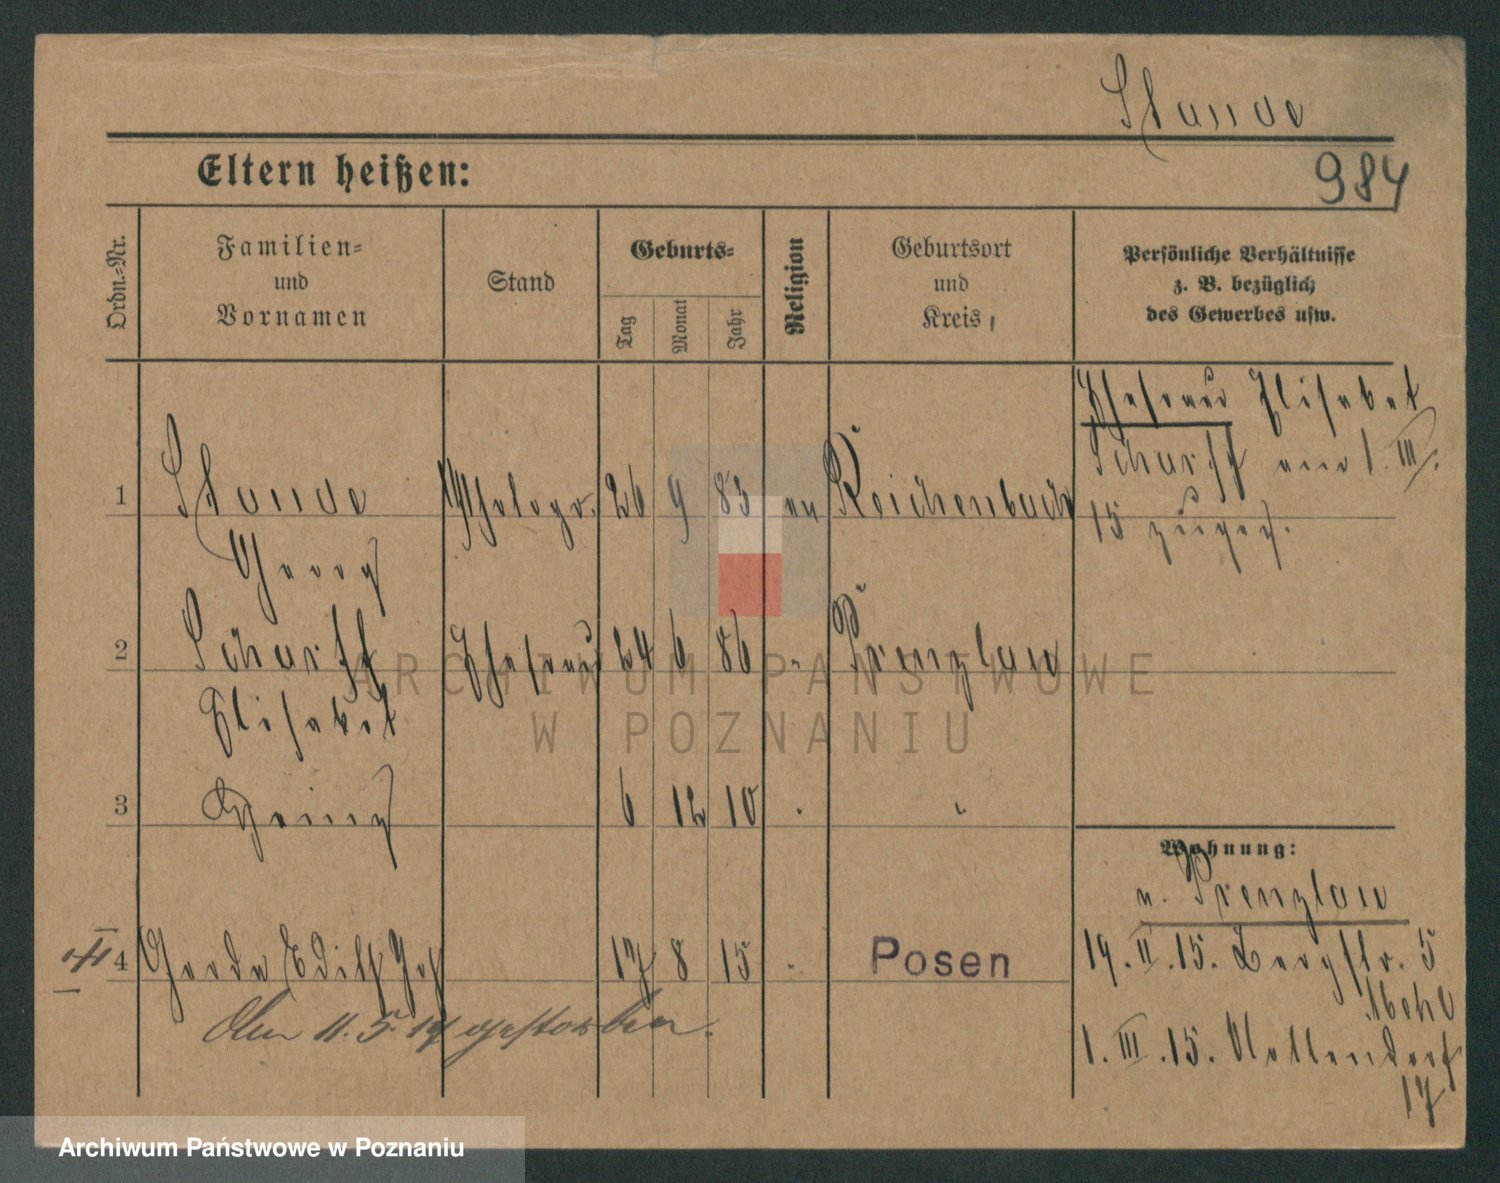 Staude
Eltern heißen:
984
Ordn.=Nr.
Familien=
und
Vornamen
Stand
Geburts=
Tag
Monat
Jahr
Religion
Geburtsort
und
Kreis
Persönliche Verhältnisse
z. B. bezüglich
des Gewerbes usw.
Ehefrau Elisabet
Scharff am 1. III.
15 zugez.
1
Staude
Photogr. 26 9 83 ev Reichenbach
Georg
2
Scharff
Ehefrau 24 6 86 " Prenzlau
Elisabet
3
Heinz
6 12 10 "
ARCHIWUM PAŃSTWOWE
W POZNANIU
Wohnung:
v. Prenzlau
4
Gerda Edith
17 8 15 " Posen
19. II. 15. Bergstr. 5
1. III. 15. Nollendorf
17
Am 11. 5. 17 gestorben.
Archiwum Państwowe w Poznaniu